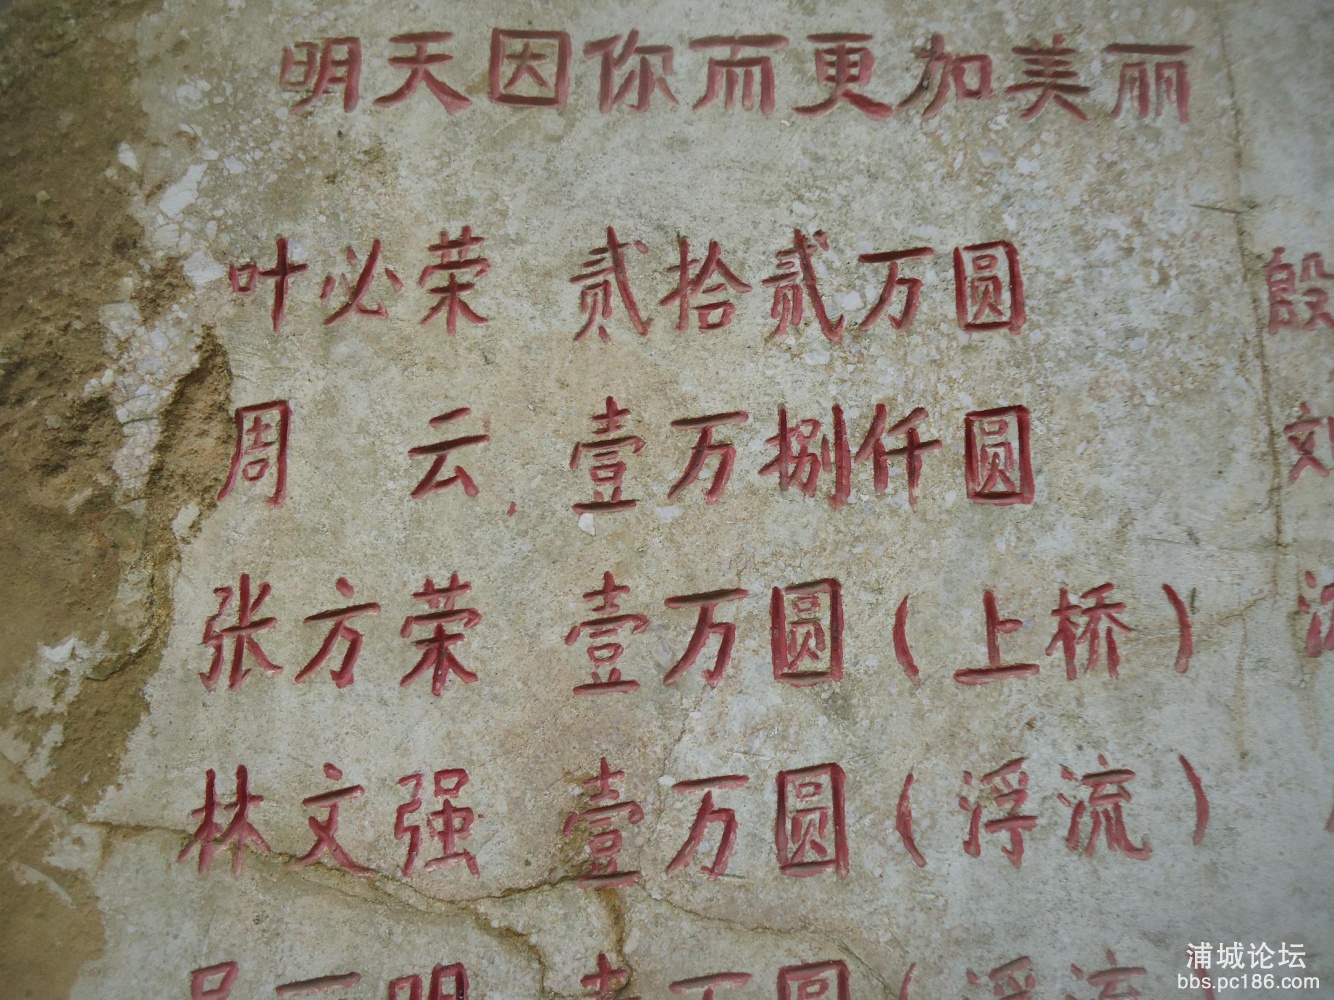 明天因你而更加美丽
叶必荣 贰拾贰万圆 殷
周 云 壹万捌仟圆 刘
张方荣 壹万圆（上桥）
林文强 壹万圆（浮流）
明 壹万圆（浮流）
浦城论坛
bbs.pc186.com